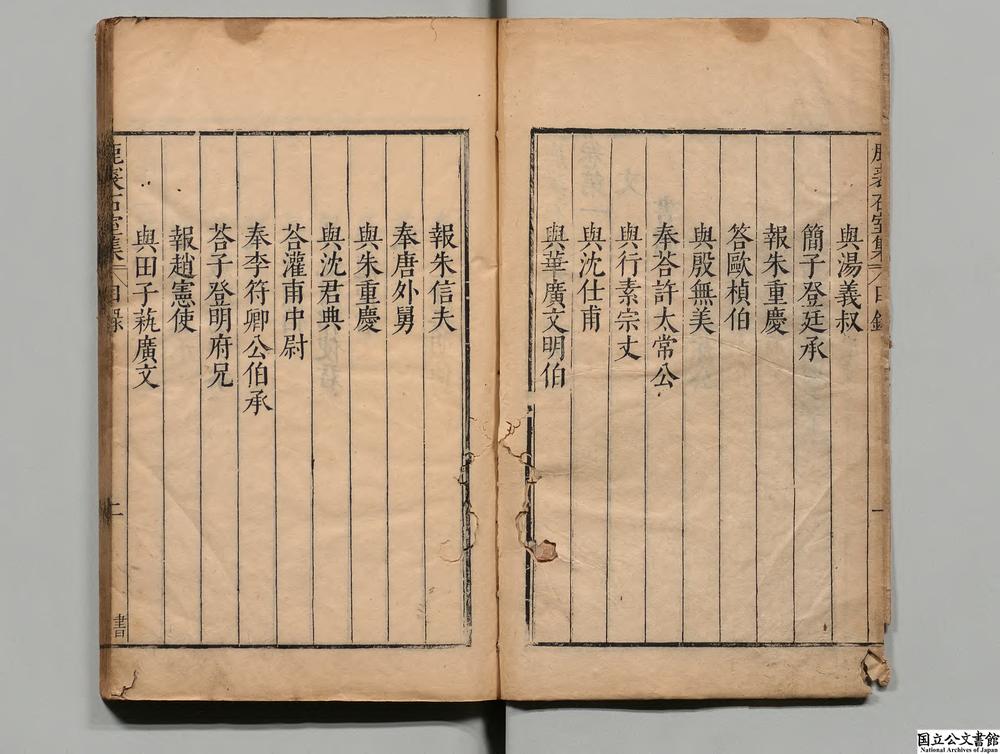 鹿裘石室集 目錄 一
與湯義叔
簡子登廷丞
報朱重慶
答歐楨伯
與殷無美
奉荅許太常公
與行素宗丈
與沈仕甫
與華廣文明伯
報朱信夫
奉唐外舅
與朱重慶
與沈君典
荅灌甫中尉
奉李符卿公伯承
荅子登明府兄
報趙憲使
與田子蓺廣文
鹿裘石室集 目錄 二 書
国立公文書館
National Archives of Japan